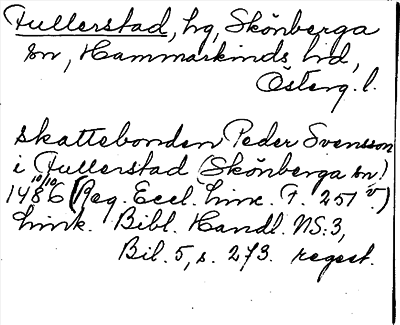 Fullerstad, hg, Skönberga
sn, Hammarkinds hd,
Österg. l.
skattebonden Peder Svensson
i Fullerstad (Skönberga sn)
10/10 1486 (Reg. Eccl. Linc. F. 251 v.)
Link. Bibl. Handl. NS:3,
Bil. 5, s. 273. regest.